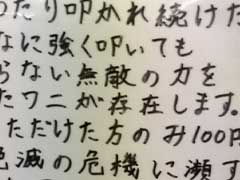 ったり叩かれ続けた
なに強く叩いても
らない無敵の力を
たワニが存在します。
ただけた方のみ100円
絶滅の危機に瀕す